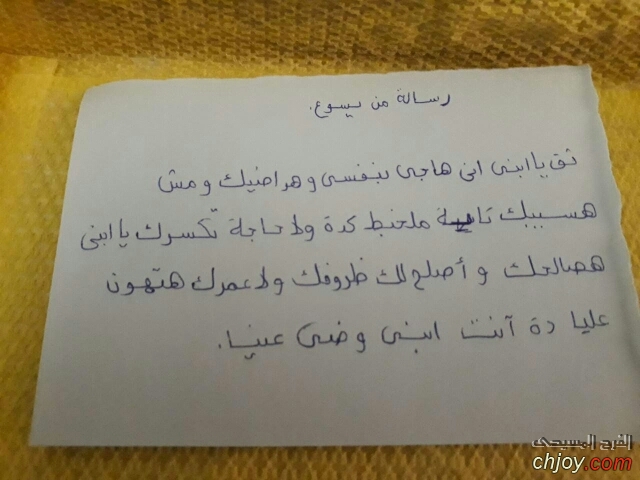 رسالة من يسوع.
ثق يا ابنى انى هاجى بنفسى وهراضيك ومش
هسيبك تايهة ملخبط كدة ولا حاجة تكسرك يا ابنى
هصالحك وأصلح لك ظروفك ولا عمرك هتهون
عليا دة آنت ابنى وضى عنيا.
الفرح المسيحى
chjoy.com